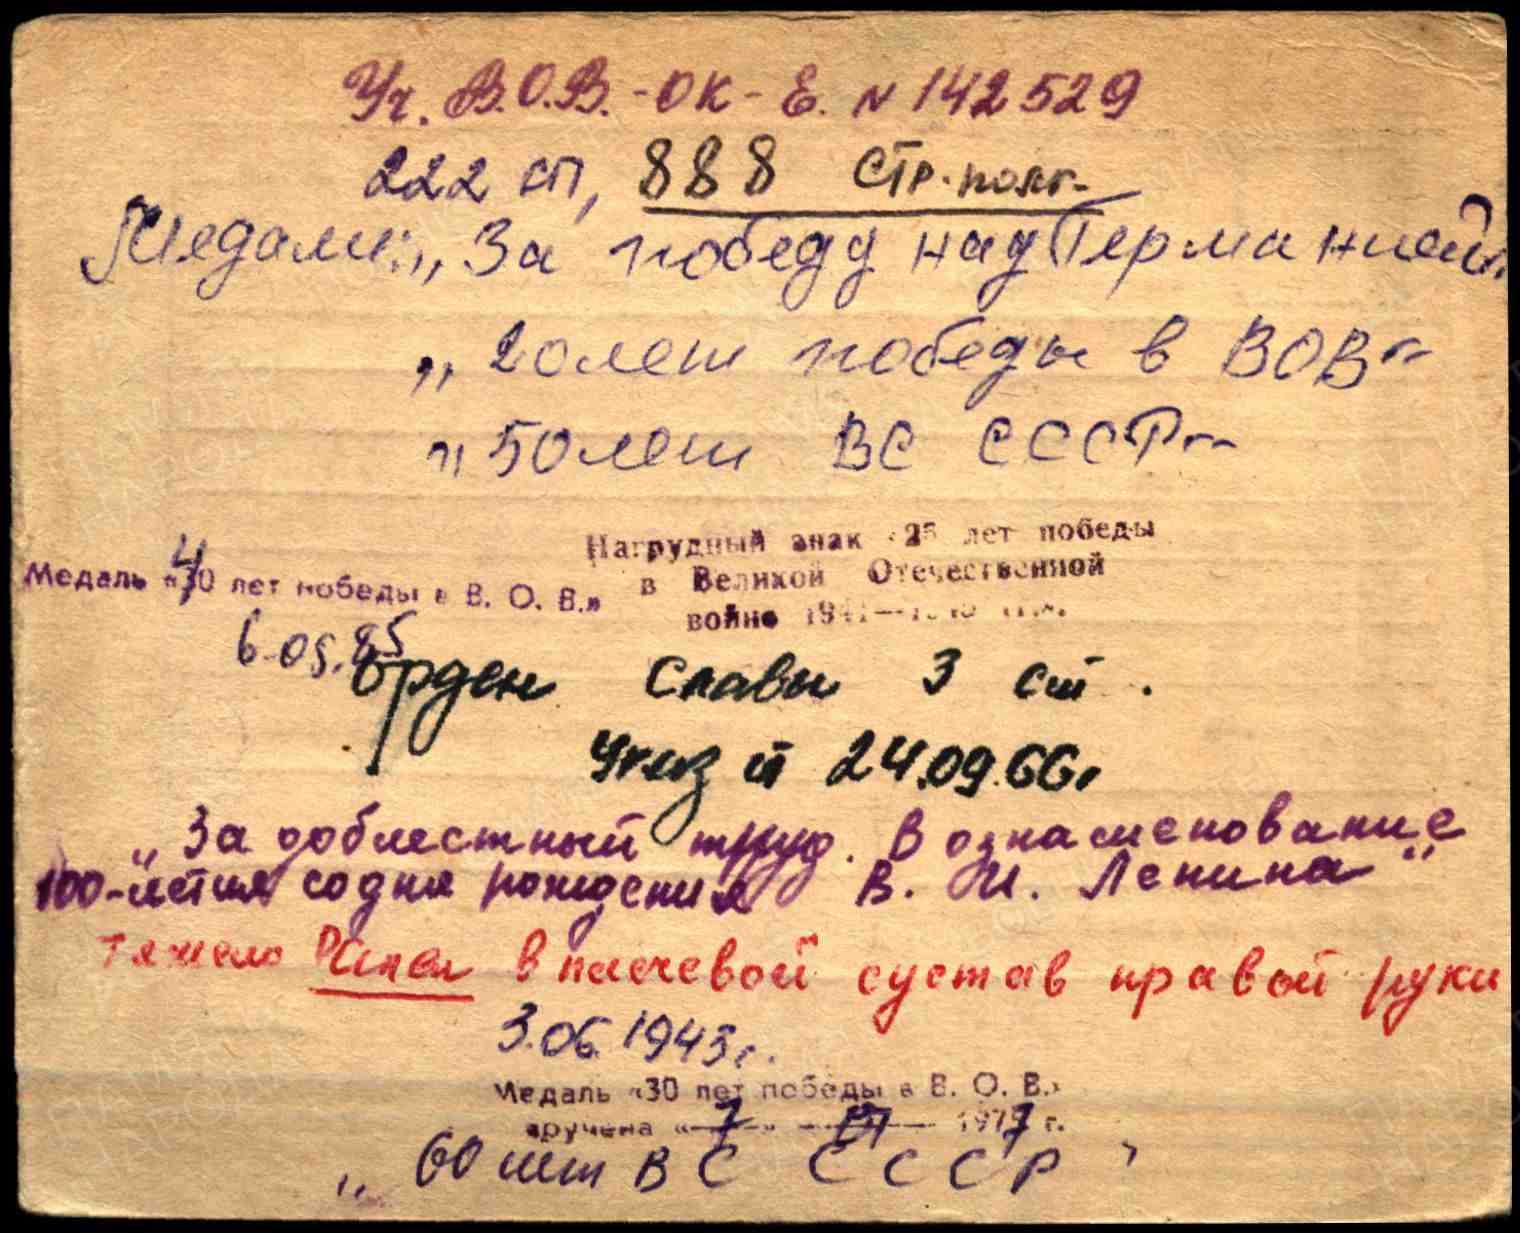 Уч. В.О.В. - ОК - Е. N 142529
222 сп, 888 стр. полк.
Медали: „За победу над Германией"
„20 лет победы в ВОВ"
„50 лет ВС СССР"
Нагрудный знак «25 лет победы
в Великой Отечественной
войне 1941—1945 гг.».
Медаль «40 лет победы в В. О. В.»
6.05.85
Орден Славы 3 ст.
Указ от 24.09.66г
„За доблестный труд. В ознаменование
100-летия со дня рождения В. И. Ленина"
тяжело ранен в плечевой сустав правой руки
3.06.1943г.
Медаль «30 лет победы в В. О. В.»
вручена «7» 1977 г.
„60 лет ВС СССР"